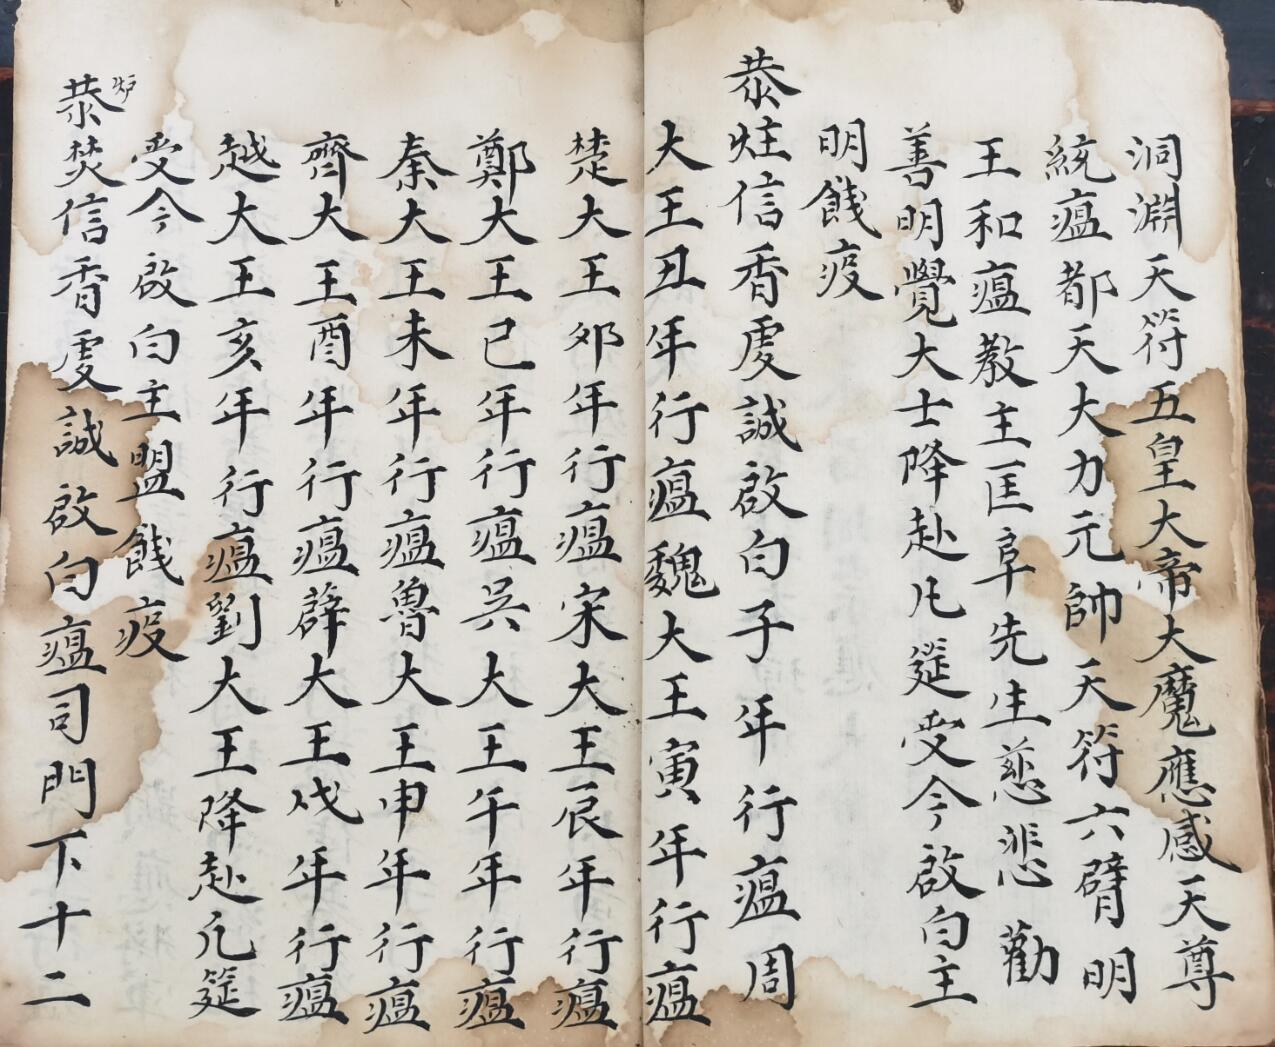 洞淵天符五皇大帝大魔應感天尊
統瘟都天大力元帥天符六臂明
王和瘟教主匡阜先生慈悲勸
善明覺大士降赴凡筵受今啟白主
明餞疫
恭炷信香虔誠啟白子年行瘟周
大王丑年行瘟魏大王寅年行瘟
楚大王夘年行瘟宋大王辰年行瘟
鄭大王巳年行瘟吳大王午年行瘟
秦大王未年行瘟魯大王申年行瘟
齊大王酉年行瘟薛大王戌年行瘟
越大王亥年行瘟劉大王降赴凢筵
受今啟白主盟餞疫
恭炉焚信香虔誠啟白瘟司門下十二